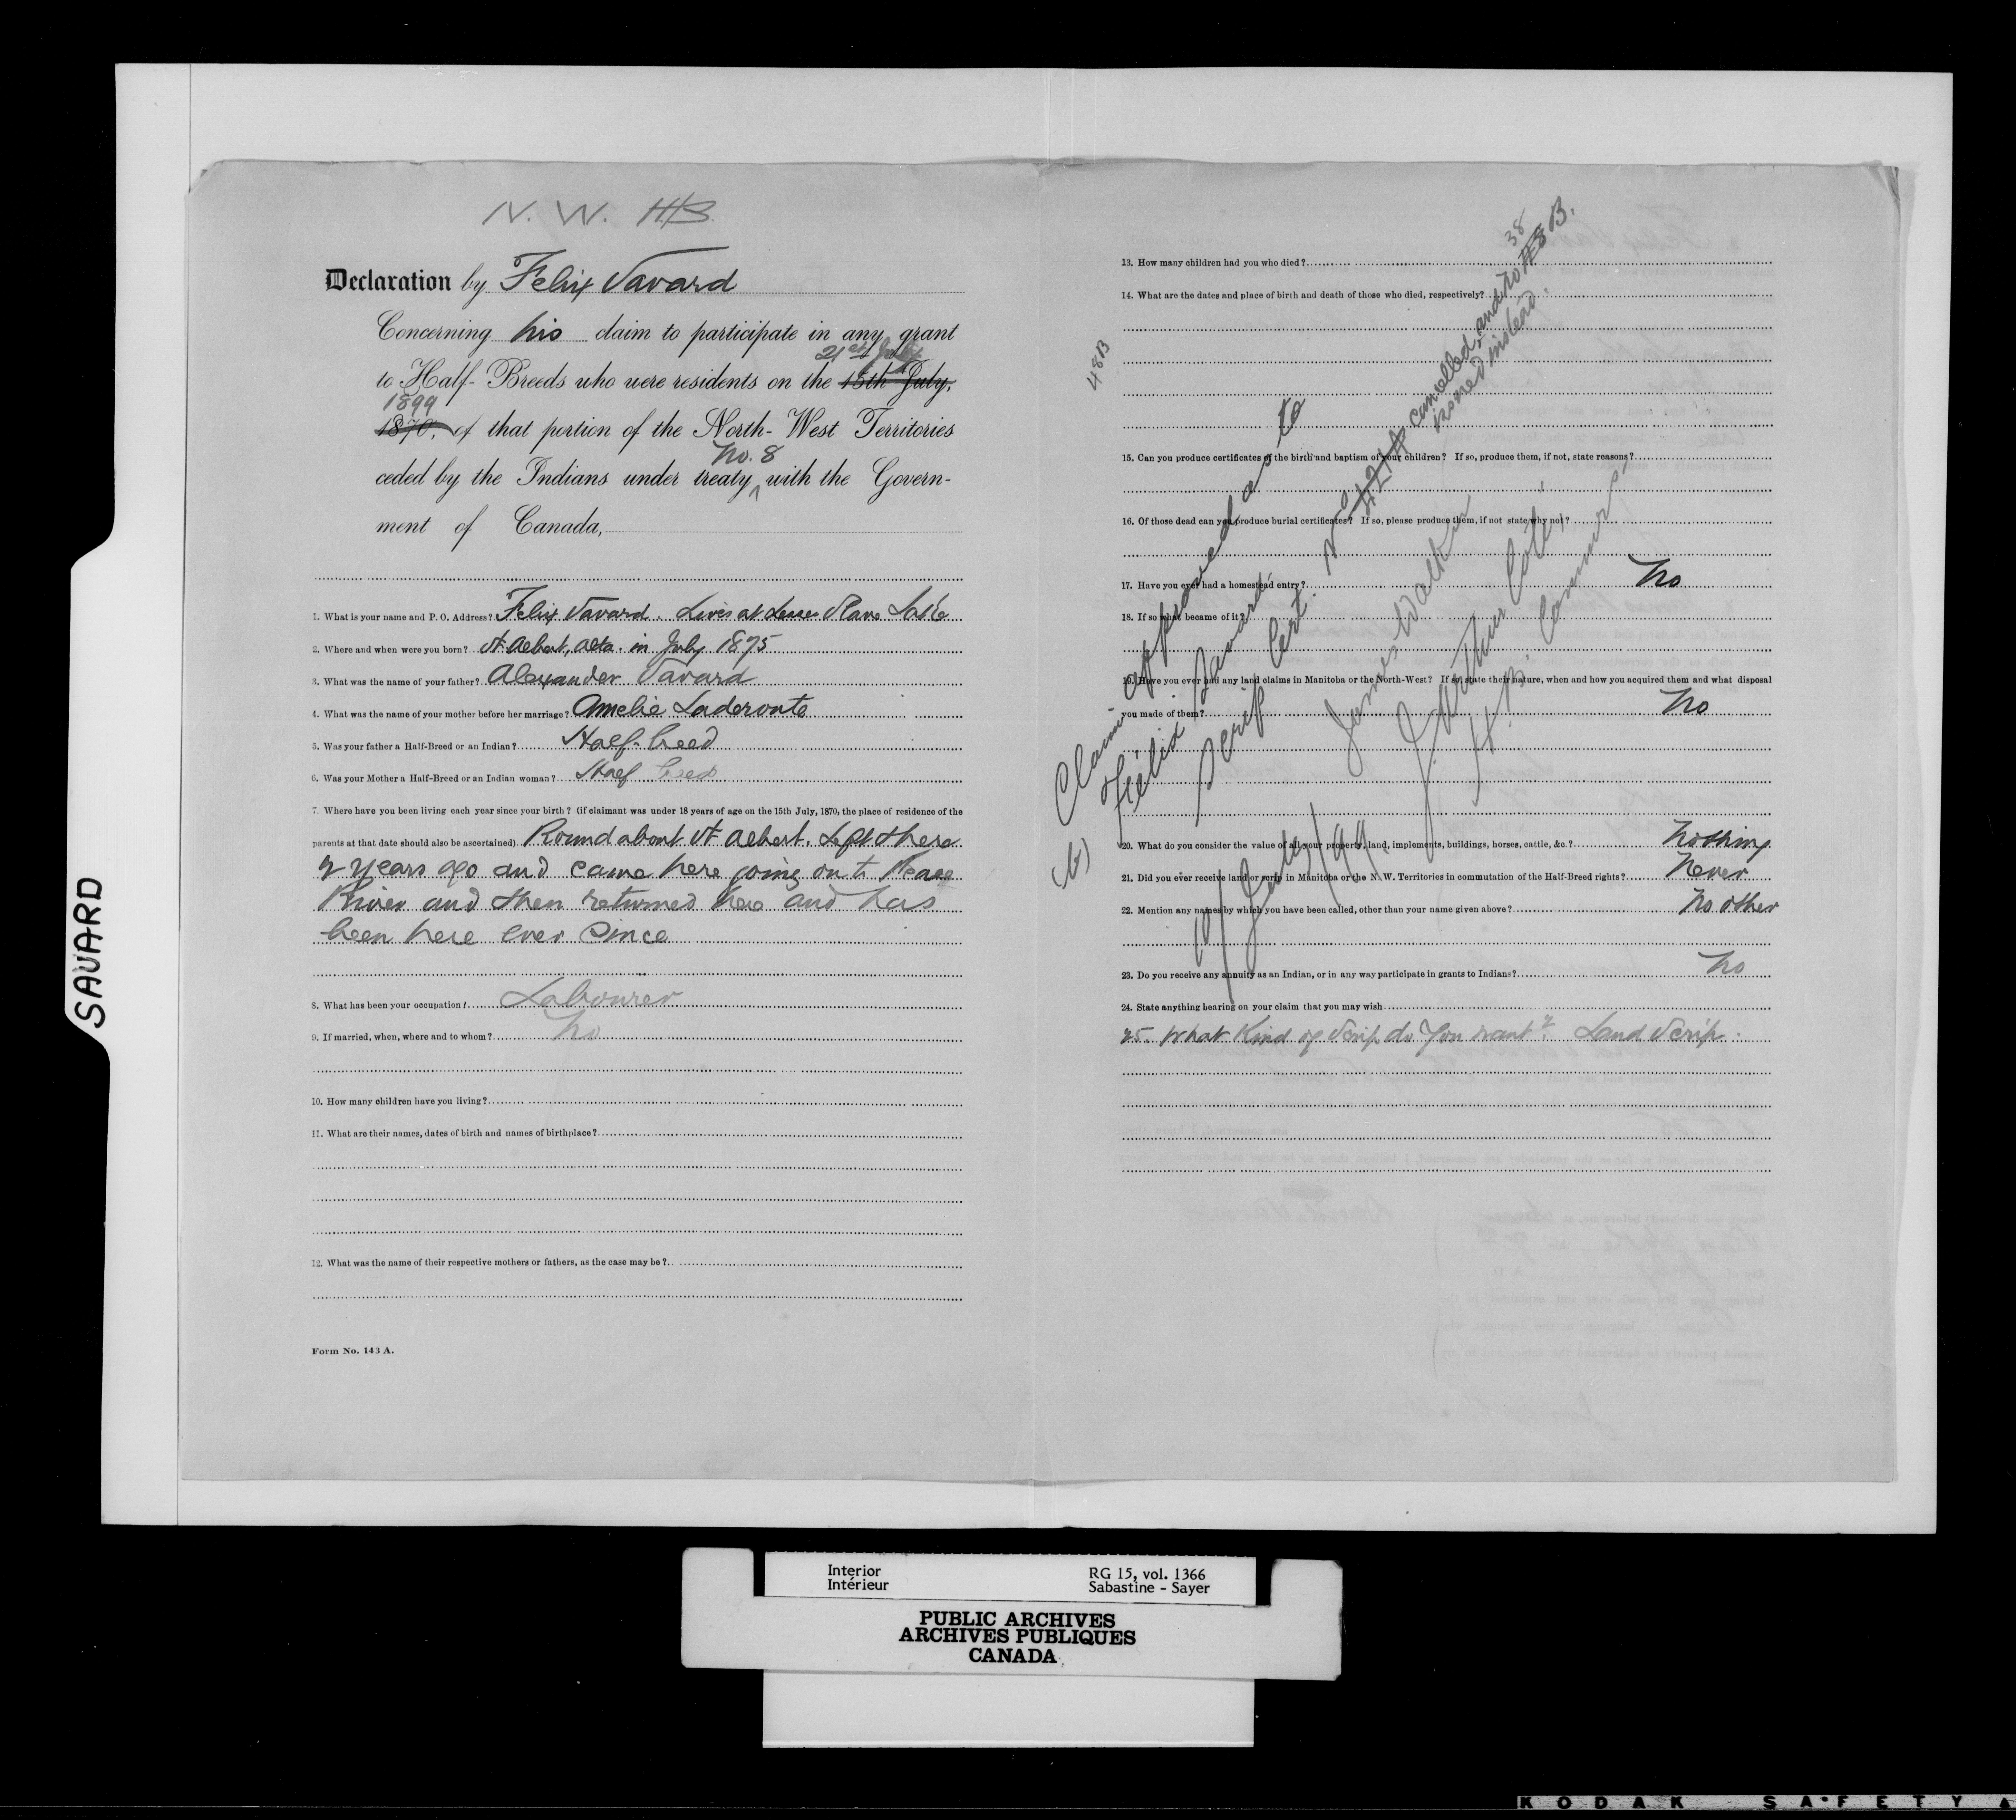 SAVARD
N. W. H.B.
Declaration by Felix Savard
Concerning his claim to participate in any grant
21st July
to Half-Breeds who were residents on the 15th July,
1899
1870, of that portion of the North-West Territories
No. 8
ceded by the Indians under treaty ^ with the Govern-
ment of Canada,
1. What is your name and P. O. Address? Felix Savard Lives at Lesser Slave Lake
2. Where and when were you born? St Albert, Alta. in July 1875
3. What was the name of your father? Alexander Savard
4. What was the name of your mother before her marriage? Amelie Laderoute
5. Was your father a Half-Breed or an Indian? Half-breed
6. Was your Mother a Half-Breed or an Indian woman? Half breed
7. Where have you been living each year since your birth? (if claimant was under 18 years of age on the 15th July, 1870, the place of residence of the
parents at that date should also be ascertained) Round about St Albert. Left there
2 years ago and came here going on to Peace
River and then returned here and has
been here ever since
8. What has been your occupation? Labourer
9. If married, when, where and to whom? No
10. How many children have you living?
11. What are their names, dates of birth and names of birthplace?
12. What was the name of their respective mothers or fathers, as the case may be?
Form No. 143 A.
13. How many children had you who died?
14. What are the dates and place of birth and death of those who died, respectively?
48B
15. Can you produce certificates of the birth and baptism of your children? If so, produce them, if not, state reasons?
16. Of those dead can you produce burial certificates? If so, please produce them, if not state why not?
17. Have you ever had a homestead entry? No
18. If so what became of it?
19. Have you ever had any land claims in Manitoba or the North-West? If so, state their nature, when and how you acquired them and what disposal
you made of them? No
20. What do you consider the value of all your property, land, implements, buildings, horses, cattle, &c.? Nothing
21. Did you ever receive land or scrip in Manitoba or the N. W. Territories in commutation of the Half-Breed rights? Never
22. Mention any names by which you have been called, other than your name given above? No other
23. Do you receive any annuity as an Indian, or in any way participate in grants to Indians? No
24. State anything bearing on your claim that you may wish
25. What Kind of Scrip do you want? Land Scrip
Claim approved as to
(b) Félix Savard
Scrip Cert. No 4214 cancelled, and No 48B.
38
issued instead.
James Walker
J. Arthur Coté,
H. B. Commrs.
10/July/99.
Interior
Intérieur
RG 15, vol. 1366
Sabastine - Sayer
PUBLIC ARCHIVES
ARCHIVES PUBLIQUES
CANADA
KODAK SAFETY